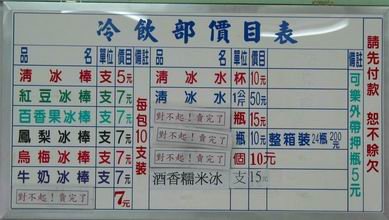 冷飲部價目表
品名 單位 價目 備註 品名 單位 價目 備註
清冰棒 支 5元 清冰水 杯 10元
紅豆冰棒 支 7元 清冰水 1公斤 50元
百香果冰棒 支 7元 對不起！賣完了 瓶 15元
鳳梨冰棒 支 7元 對不起！賣完了 瓶 10元 整箱裝24瓶200元
烏梅冰棒 支 7元 對不起！賣完了 個 10元
牛奶冰棒 支 7元 酒香糯米冰 支 15元
對不起！賣完了 7元
每包10支裝
可樂外帶押瓶5元
請先付款 恕不賒欠